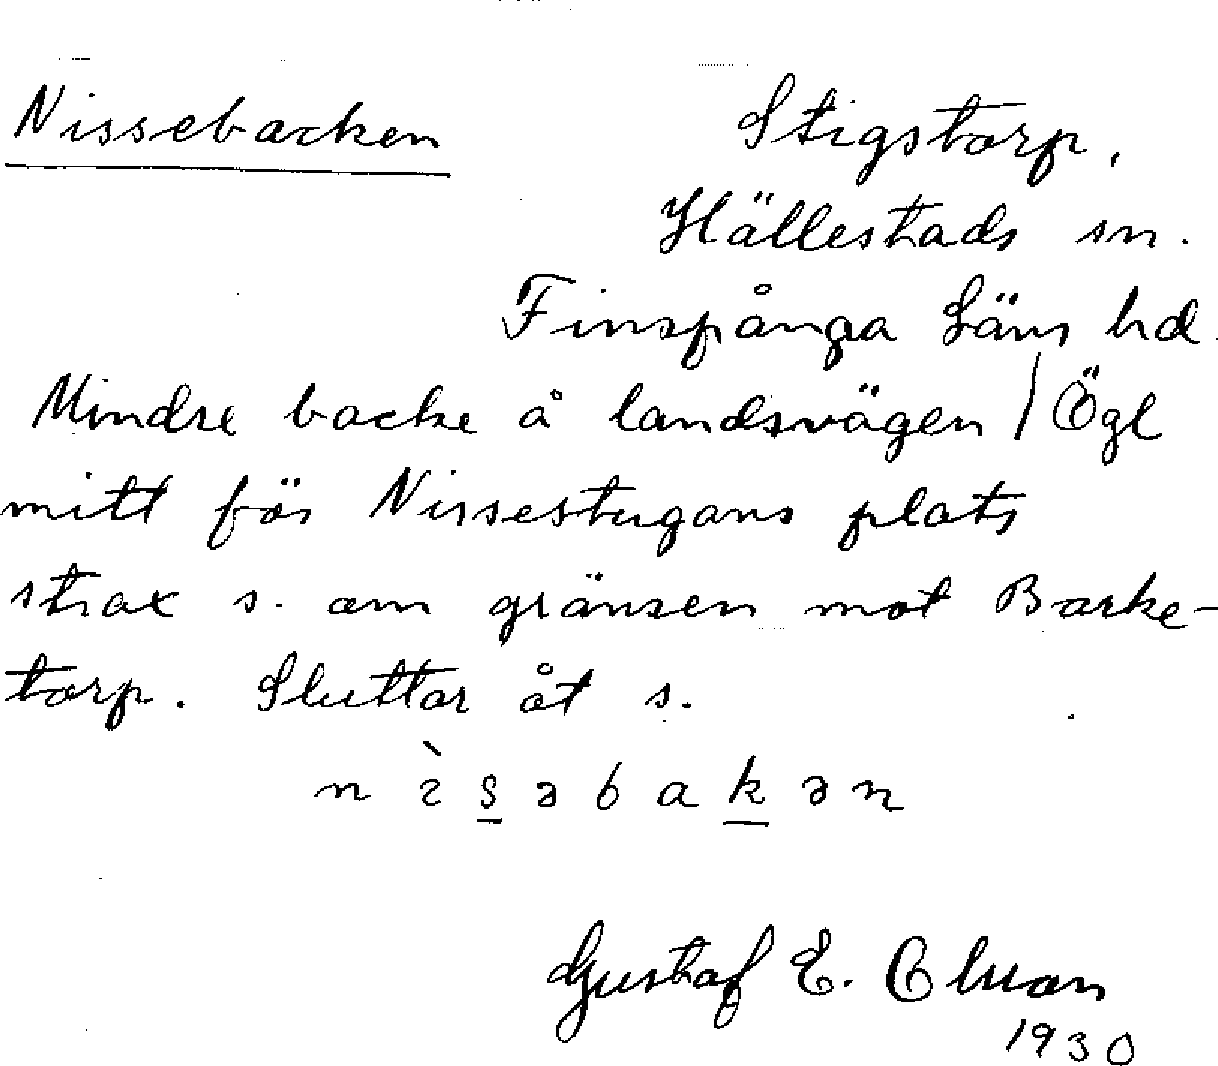 Nissebacken
Stigstorp,
Hällestads sn.
Finspånga Läns hd.
Mindre backe å landsvägen / Ögl
mitt för Nissestugans plats
strax s. om gränsen mot Borke-
torp. Sluttar åt s.
Gustaf E.
1930